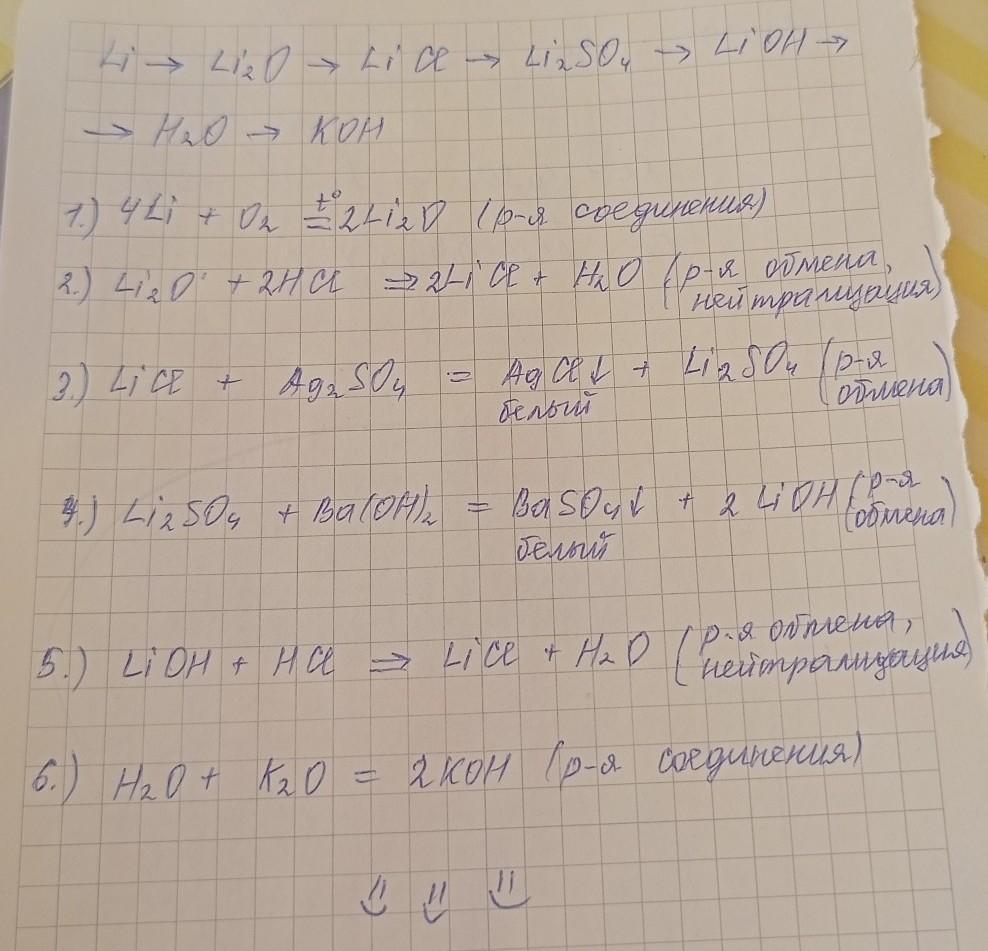 Li → Li₂O → LiCl → Li₂SO₄ → LiOH →
→ H₂O → KOH
1.) 4Li + O₂ =t° 2Li₂O (р-я соединения)
2.) Li₂O + 2HCl ⇒ 2LiCl + H₂O (р-я обмена,
нейтрализация)
3.) LiCl + Ag₂SO₄ = AgCl↓ + Li₂SO₄ (р-я
белый обмена)
4.) Li₂SO₄ + Ba(OH)₂ = BaSO₄↓ + 2LiOH (р-я
белый обмена)
5.) LiOH + HCl ⇒ LiCl + H₂O (р-я обмена,
нейтрализация)
6.) H₂O + K₂O = 2KOH (р-я соединения)